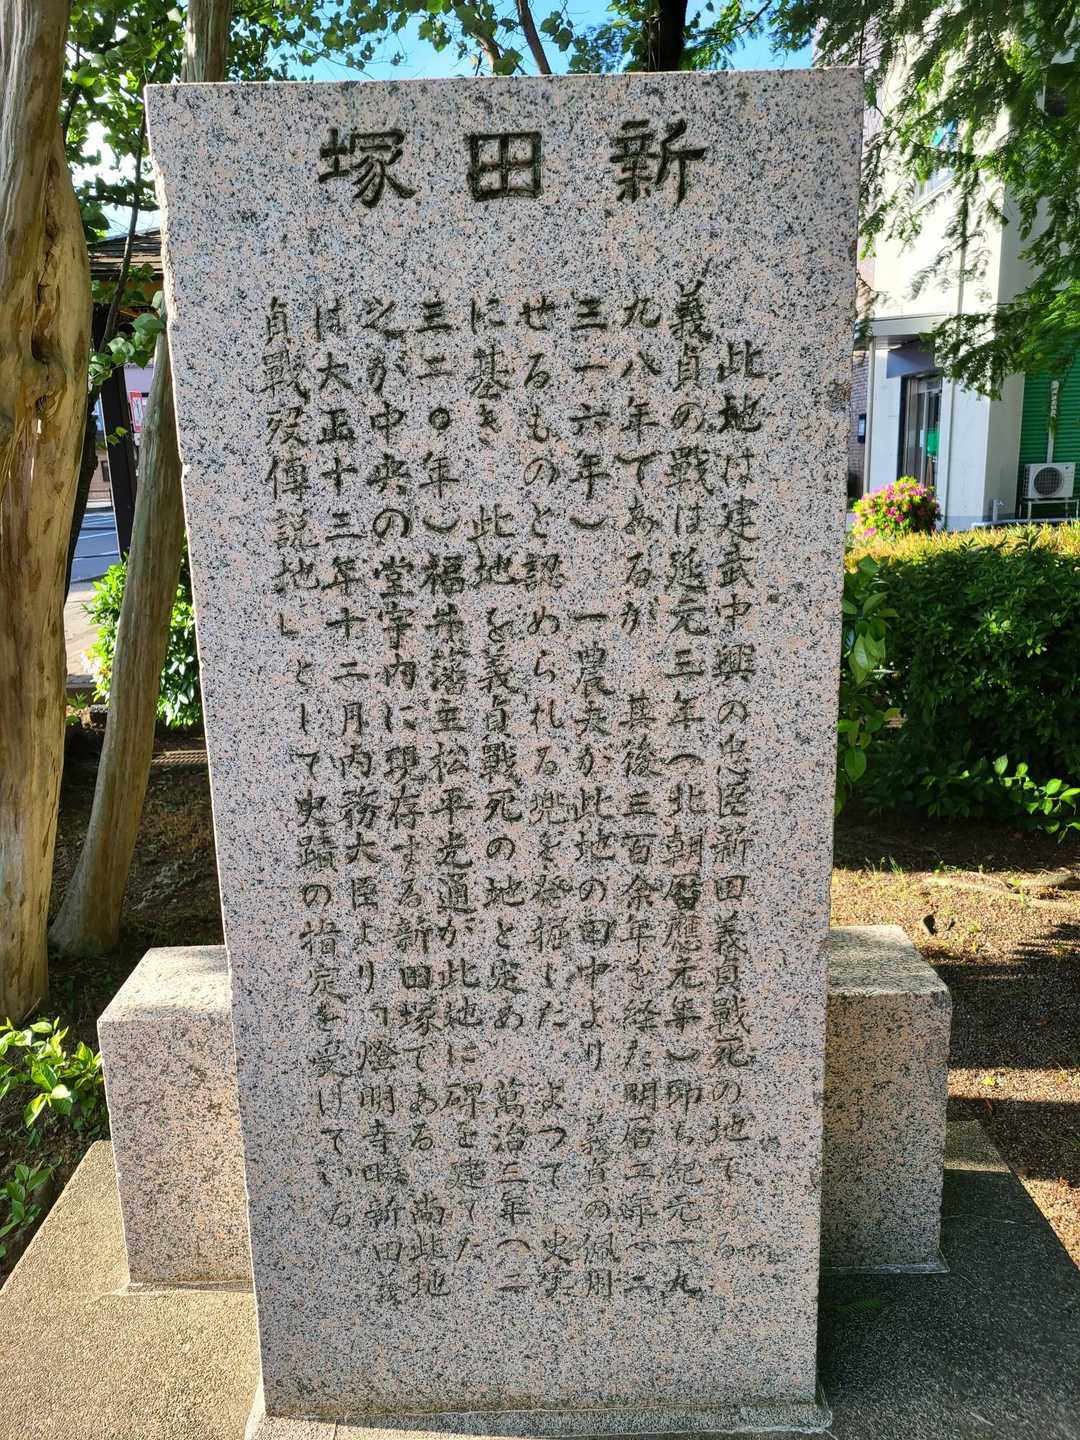 新田塚
此地は建武中興の忠臣新田義貞戰死の地である
義貞の戰は延元三年(北朝暦應元年)即ち紀元一九
九八年であるが 其後三百余年を経た明暦二年(二
三一六年) 一農夫が此地の田中より 義貞の佩用
せるものと認められる兜を発掘した よつて 史実
に基き 此地を義貞戰死の地と定め 萬治三年(二
三二〇年)福井藩主松平光通が此地に碑を建てた
之が中央の堂宇内に現存する新田塚である 尚此地
は大正十三年十二月内務大臣より「燈明寺畷新田義
貞戰歿傳説地」として史蹟の指定を受けている